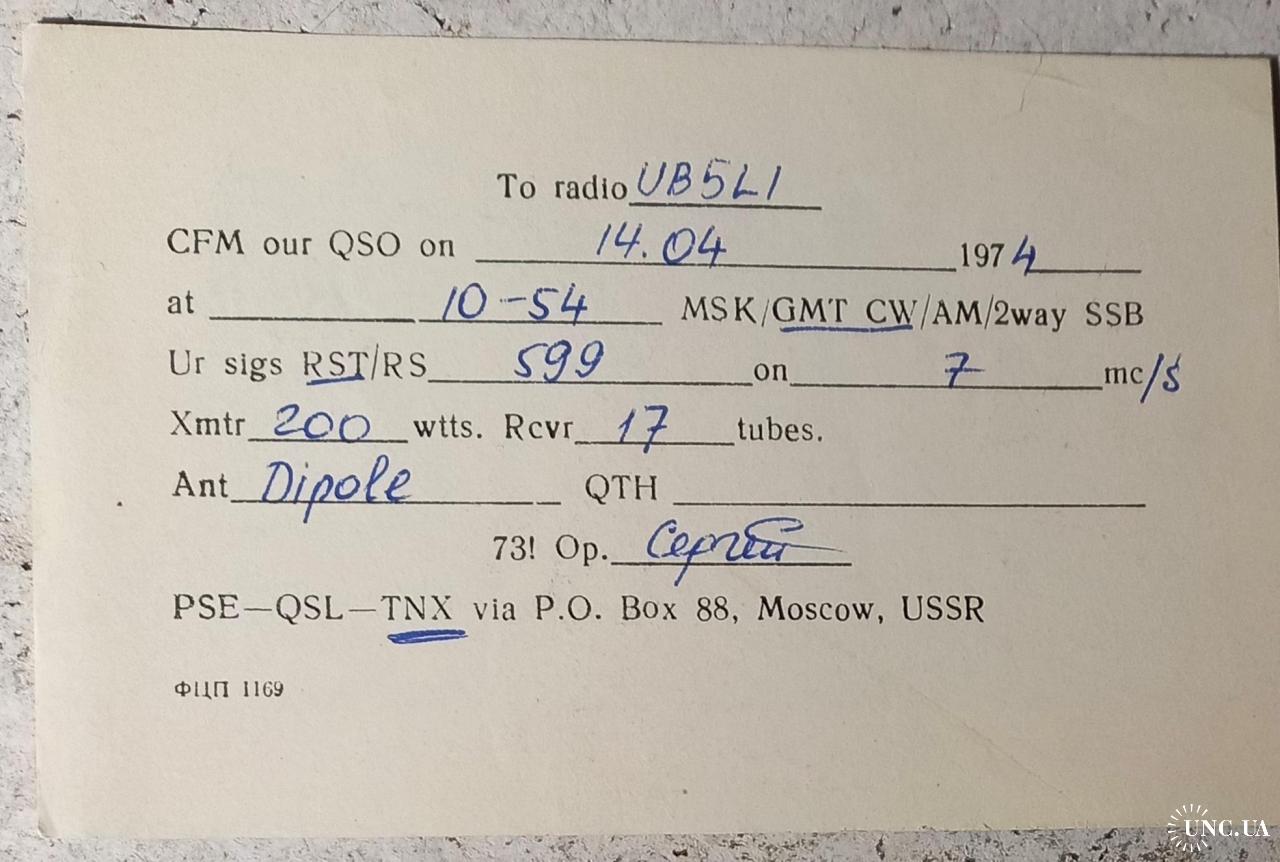 To radio UB5LI
CFM our QSO on 14.04 1974
at 10-54 MSK/GMT CW/AM/2way SSB
Ur sigs RST/RS 599 on 7 mc/s
Xmtr 200 wtts. Rcvr 17 tubes.
Ant Dipole QTH
73! Op. Сергей
PSE—QSL—TNX via P.O. Box 88, Moscow, USSR
ФЦП 1169
UNC.UA